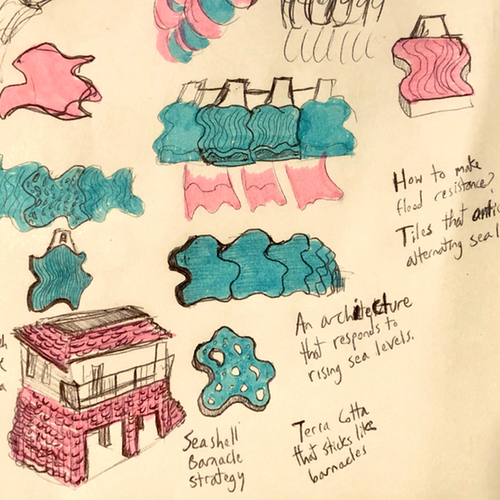 How to make
flood resistance?
Tiles that antic
alternating sea l
An architecture
that responds to
rising sea levels.
Seashell
Barnacle
strategy
Terra Cotta
that sticks like
barnacles